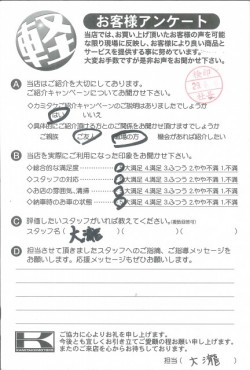 軽
お客様アンケート
当店では、お買い上げ頂いたお客様の声を可能
な限り現場に反映し、お客様により良い商品と
サービスを提供する事に努めています。
大変お手数ですが是非お声をお聞かせ下さい。
A 当店はご紹介を大切にしております。
ご紹介キャンペーンについてお聞かせ下さい。
・カミタケご紹介キャンペーンのご説明はありましたでしょうか
はい いいえ
・具体的にご紹介頂ける方とのご関係をお聞かせ頂けますでしょうか
ご親族 ご友人 職場の方 機会があれば紹介したい
B 当店を実際にご利用になった印象をお聞かせ下さい。
・総合的な満足度 大満足 4.満足 3.ふつう 2.やや不満 1.不満
・スタッフの対応 大満足 4.満足 3.ふつう 2.やや不満 1.不満
・お店の雰囲気、清掃 大満足 4.満足 3.ふつう 2.やや不満 1.不満
・納車時のお車の状態 大満足 4.満足 3.ふつう 2.やや不満 1.不満
C 評価したいスタッフがいれば教えてください。(複数回答可)
スタッフ名( 大瀧 )
D 担当させて頂きましたスタッフへのご指摘、ご指導メッセージを
お願いします。応援メッセージもぜひお願いします。
K
ご協力に心よりお礼を申し上げます。
今後とも宜しくお引き立てご愛顧の程お願い申し上げます。
またのご来店を心からお待ちしております。
担当( 大瀧 )